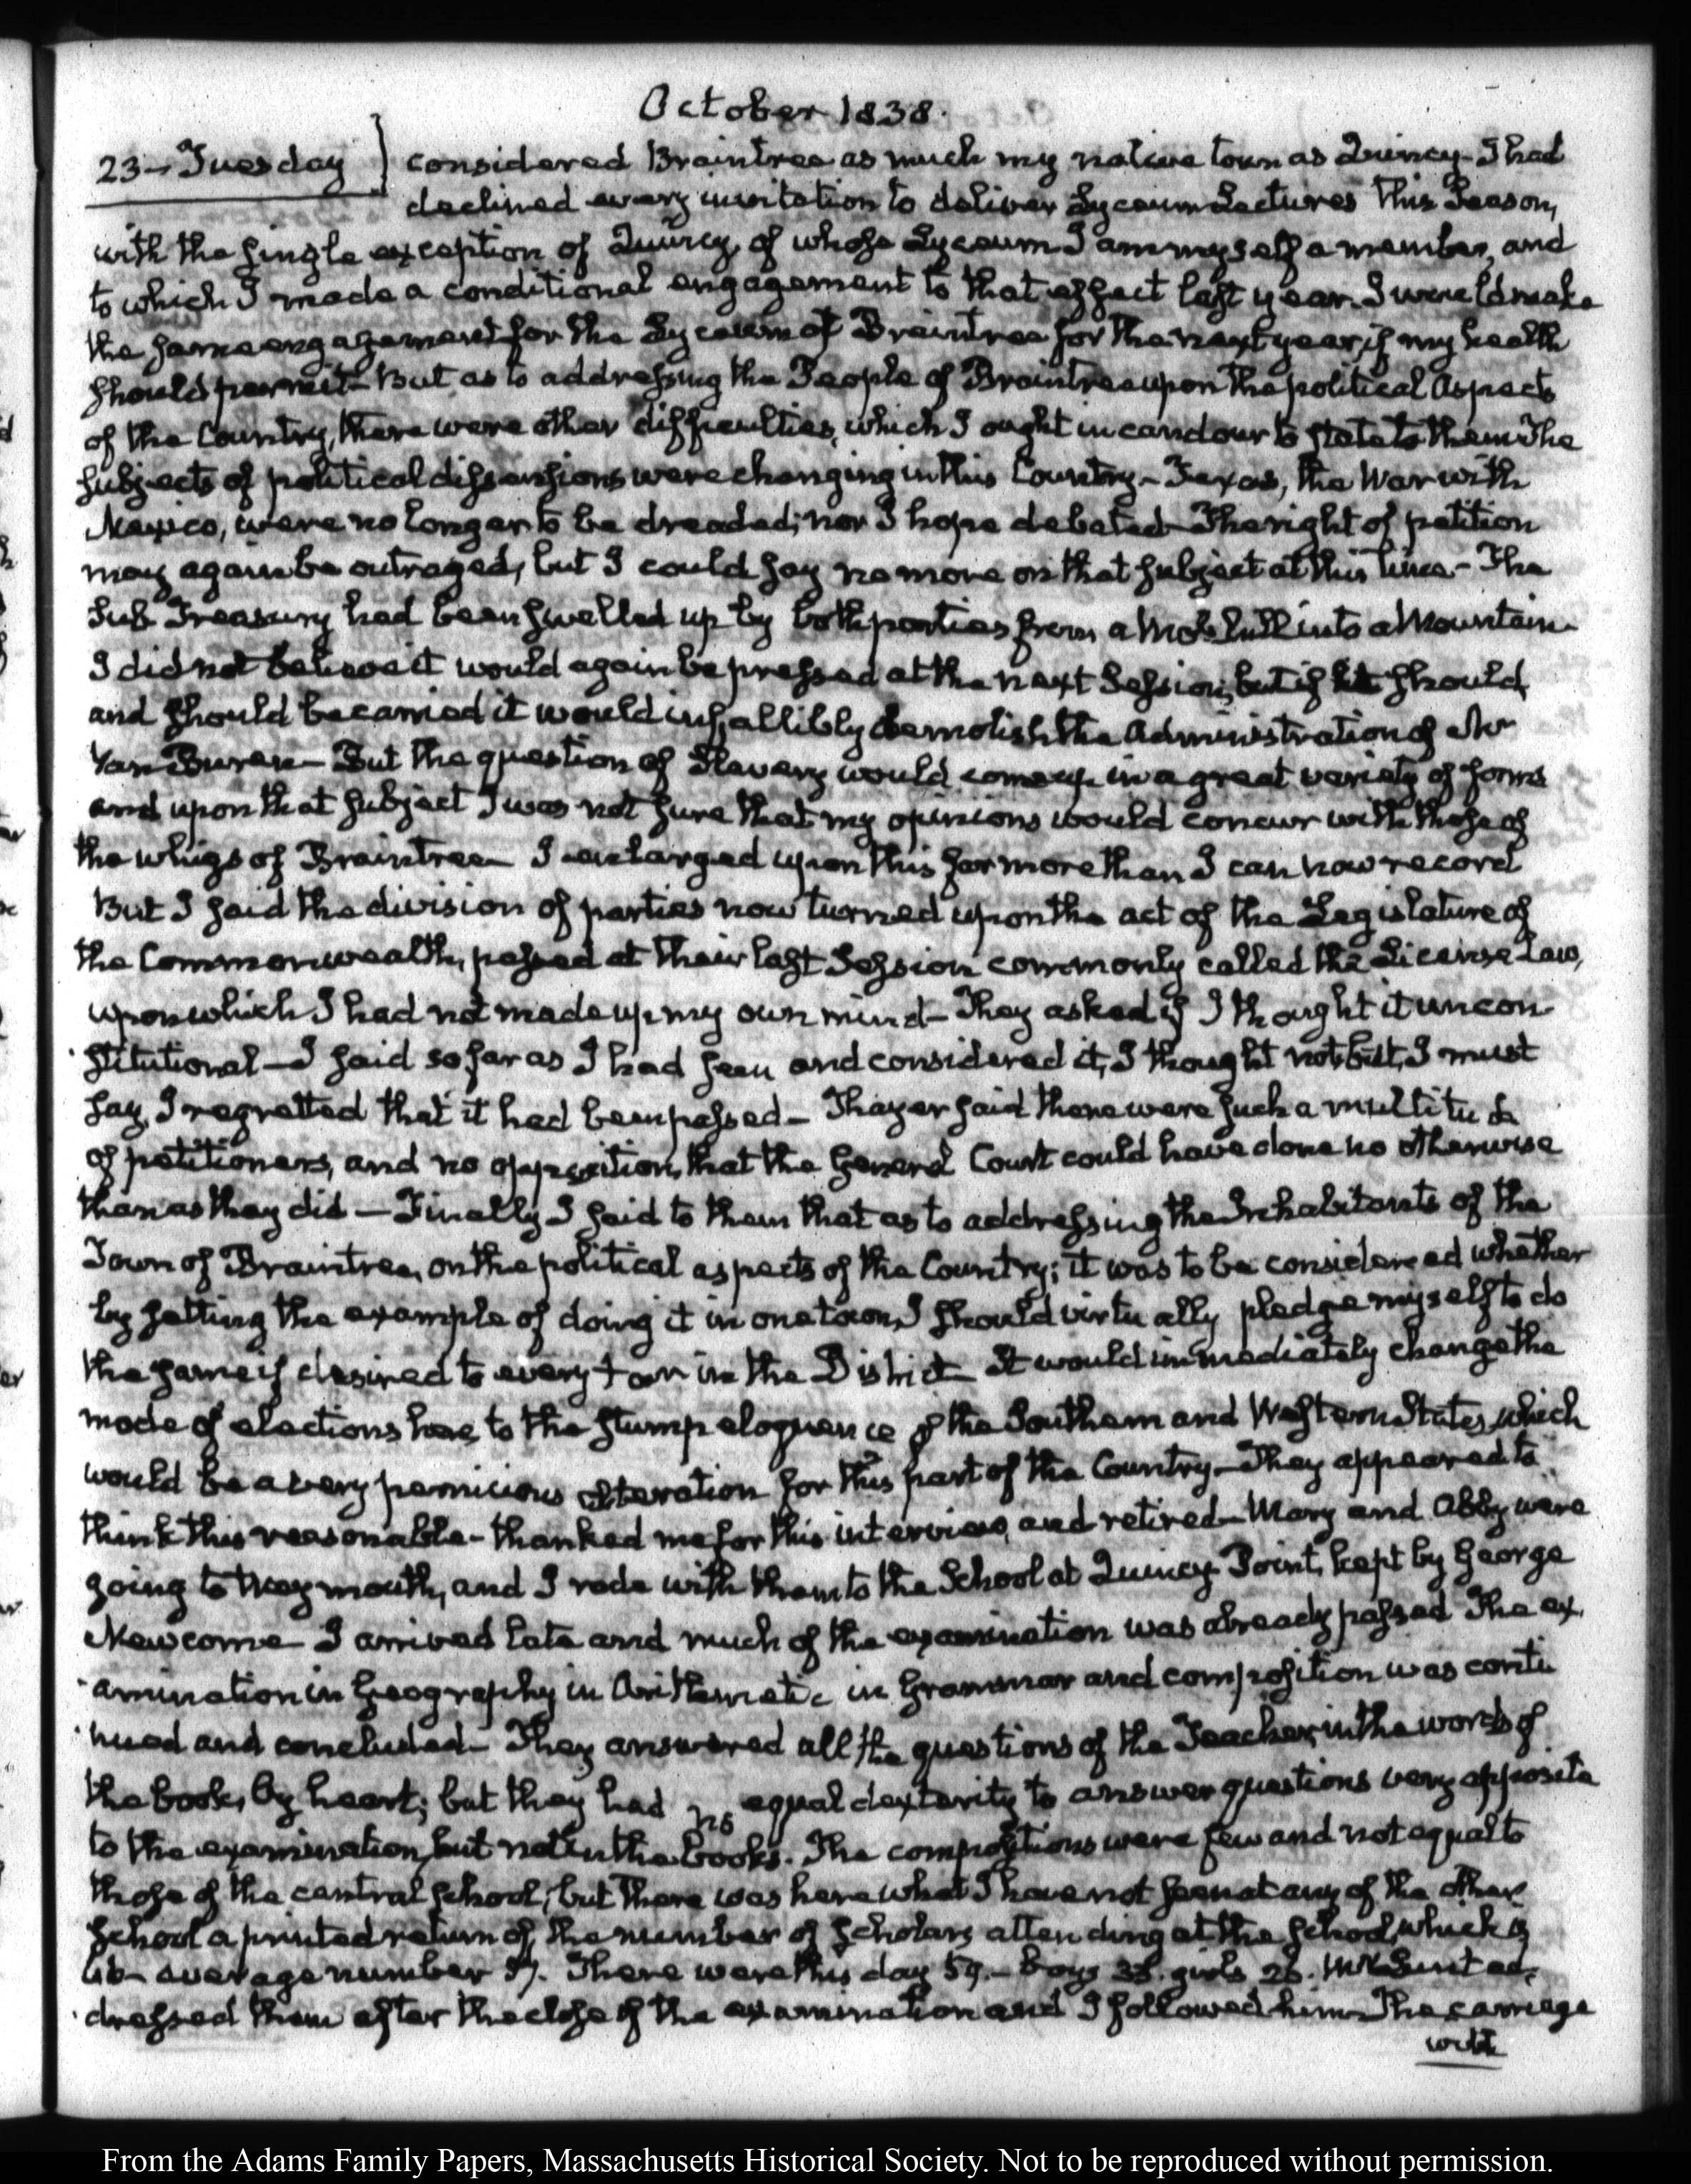 October 1838.
23 – Tuesday } considered Braintree as much my native town as Quincy – I had
declined every invitation to deliver Lyceum Lectures this Season,
with the single exception of Quincy, of whose Lyceum I am myself a member, and
to which I made a conditional engagement to that effect last year. I would make
the same engagement for the Lyceum of Braintree for the next year, if my health
should permit – But as to addressing the People of Braintree upon the political aspects
of the Country, there were other difficulties, which I ought in candour to state to them The
subjects of political dissensions were changing in this Country – Texas, the War with
Mexico, were no longer to be dreaded; nor I hope debated – The right of petition
may again be outraged, but I could say no more on that subject at this time – The
Sub Treasury had been swelled up by both parties from a Mole hill into a Mountain –
I did not believe it would again be pressed at the next Session; but if it should,
and should be carried it would infallibly demolish the Administration of Mr
Van Buren – But the question of Slavery would come up in a great variety of forms
and upon that subject I was not sure that my opinions would concur with those of
the whigs of Braintree – I enlarged upon this far more than I can now record
But I said the division of parties now turned upon the act of the Legislature of
the Commonwealth, passed at their last Session commonly called the License Law,
upon which I had not made up my own mind – They asked if I thought it uncon-
stitutional – I said so far as I had seen and considered it, I thought not but, I must
say, I regretted that it had been passed – Thayer said there were such a multitude
of petitioners, and no opposition, that the General Court could have done no otherwise
than as they did – Finally I said to them that as to addressing the Inhabitants of the
Town of Braintree, on the political aspects of the Country; it was to be considered whether
by setting the example of doing it in one town, I should virtually pledge myself to do
the same if desired to every town in the District – It would immediately change the
mode of elections here, to the stump eloquence of the Southern and Western States, which
would be a very pernicious alteration for this part of the Country – They appeared to
think this reasonable – thanked me for this interview, and retired – Mary and Abby were
going to Weymouth, and I rode with them to the School at Quincy Point, kept by George
Newcome – I arrived late and much of the examination was already passed The ex-
amination in Geography in Arithmetic in Grammar and composition was conti
nued and concluded – They answered all the questions of the Teacher, in the words of
the book, by heart; but they had no equal dexterity to answer questions very apposite
to the examination, but not in the books. The compositions were few and not equal to
those of the central school; but there was here what I have not seen at any of the other
School a printed return of the number of Scholars attending at the School, which is
average number 57. There were this day 59. – boys girls 26. Mr Lunt ad-
dressed them after the close of the examination and I followed him – The carriage
with
From the Adams Family Papers, Massachusetts Historical Society. Not to be reproduced without permission.